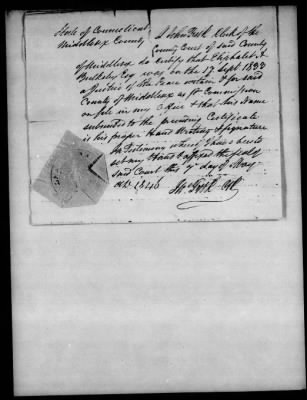 State of Connecticut
Middlesex County
I John Fisk Clerk of the
County Court of said County
of Middlesex do Certify that Eliphalet A
Bulkeley Esq was on the 17 Sept 1833
a Justice of the Peace within & for said
County of Middlesex as pr Commission
on file in my Office & that his Name
subscribed to the preceding Certificate
is his proper Hand Writing & Signature
In Testimony whereof I have hereto
set my Hand & affixed the seal of
said Court this 7 day of May
AD 1846
Jno Fisk Clk